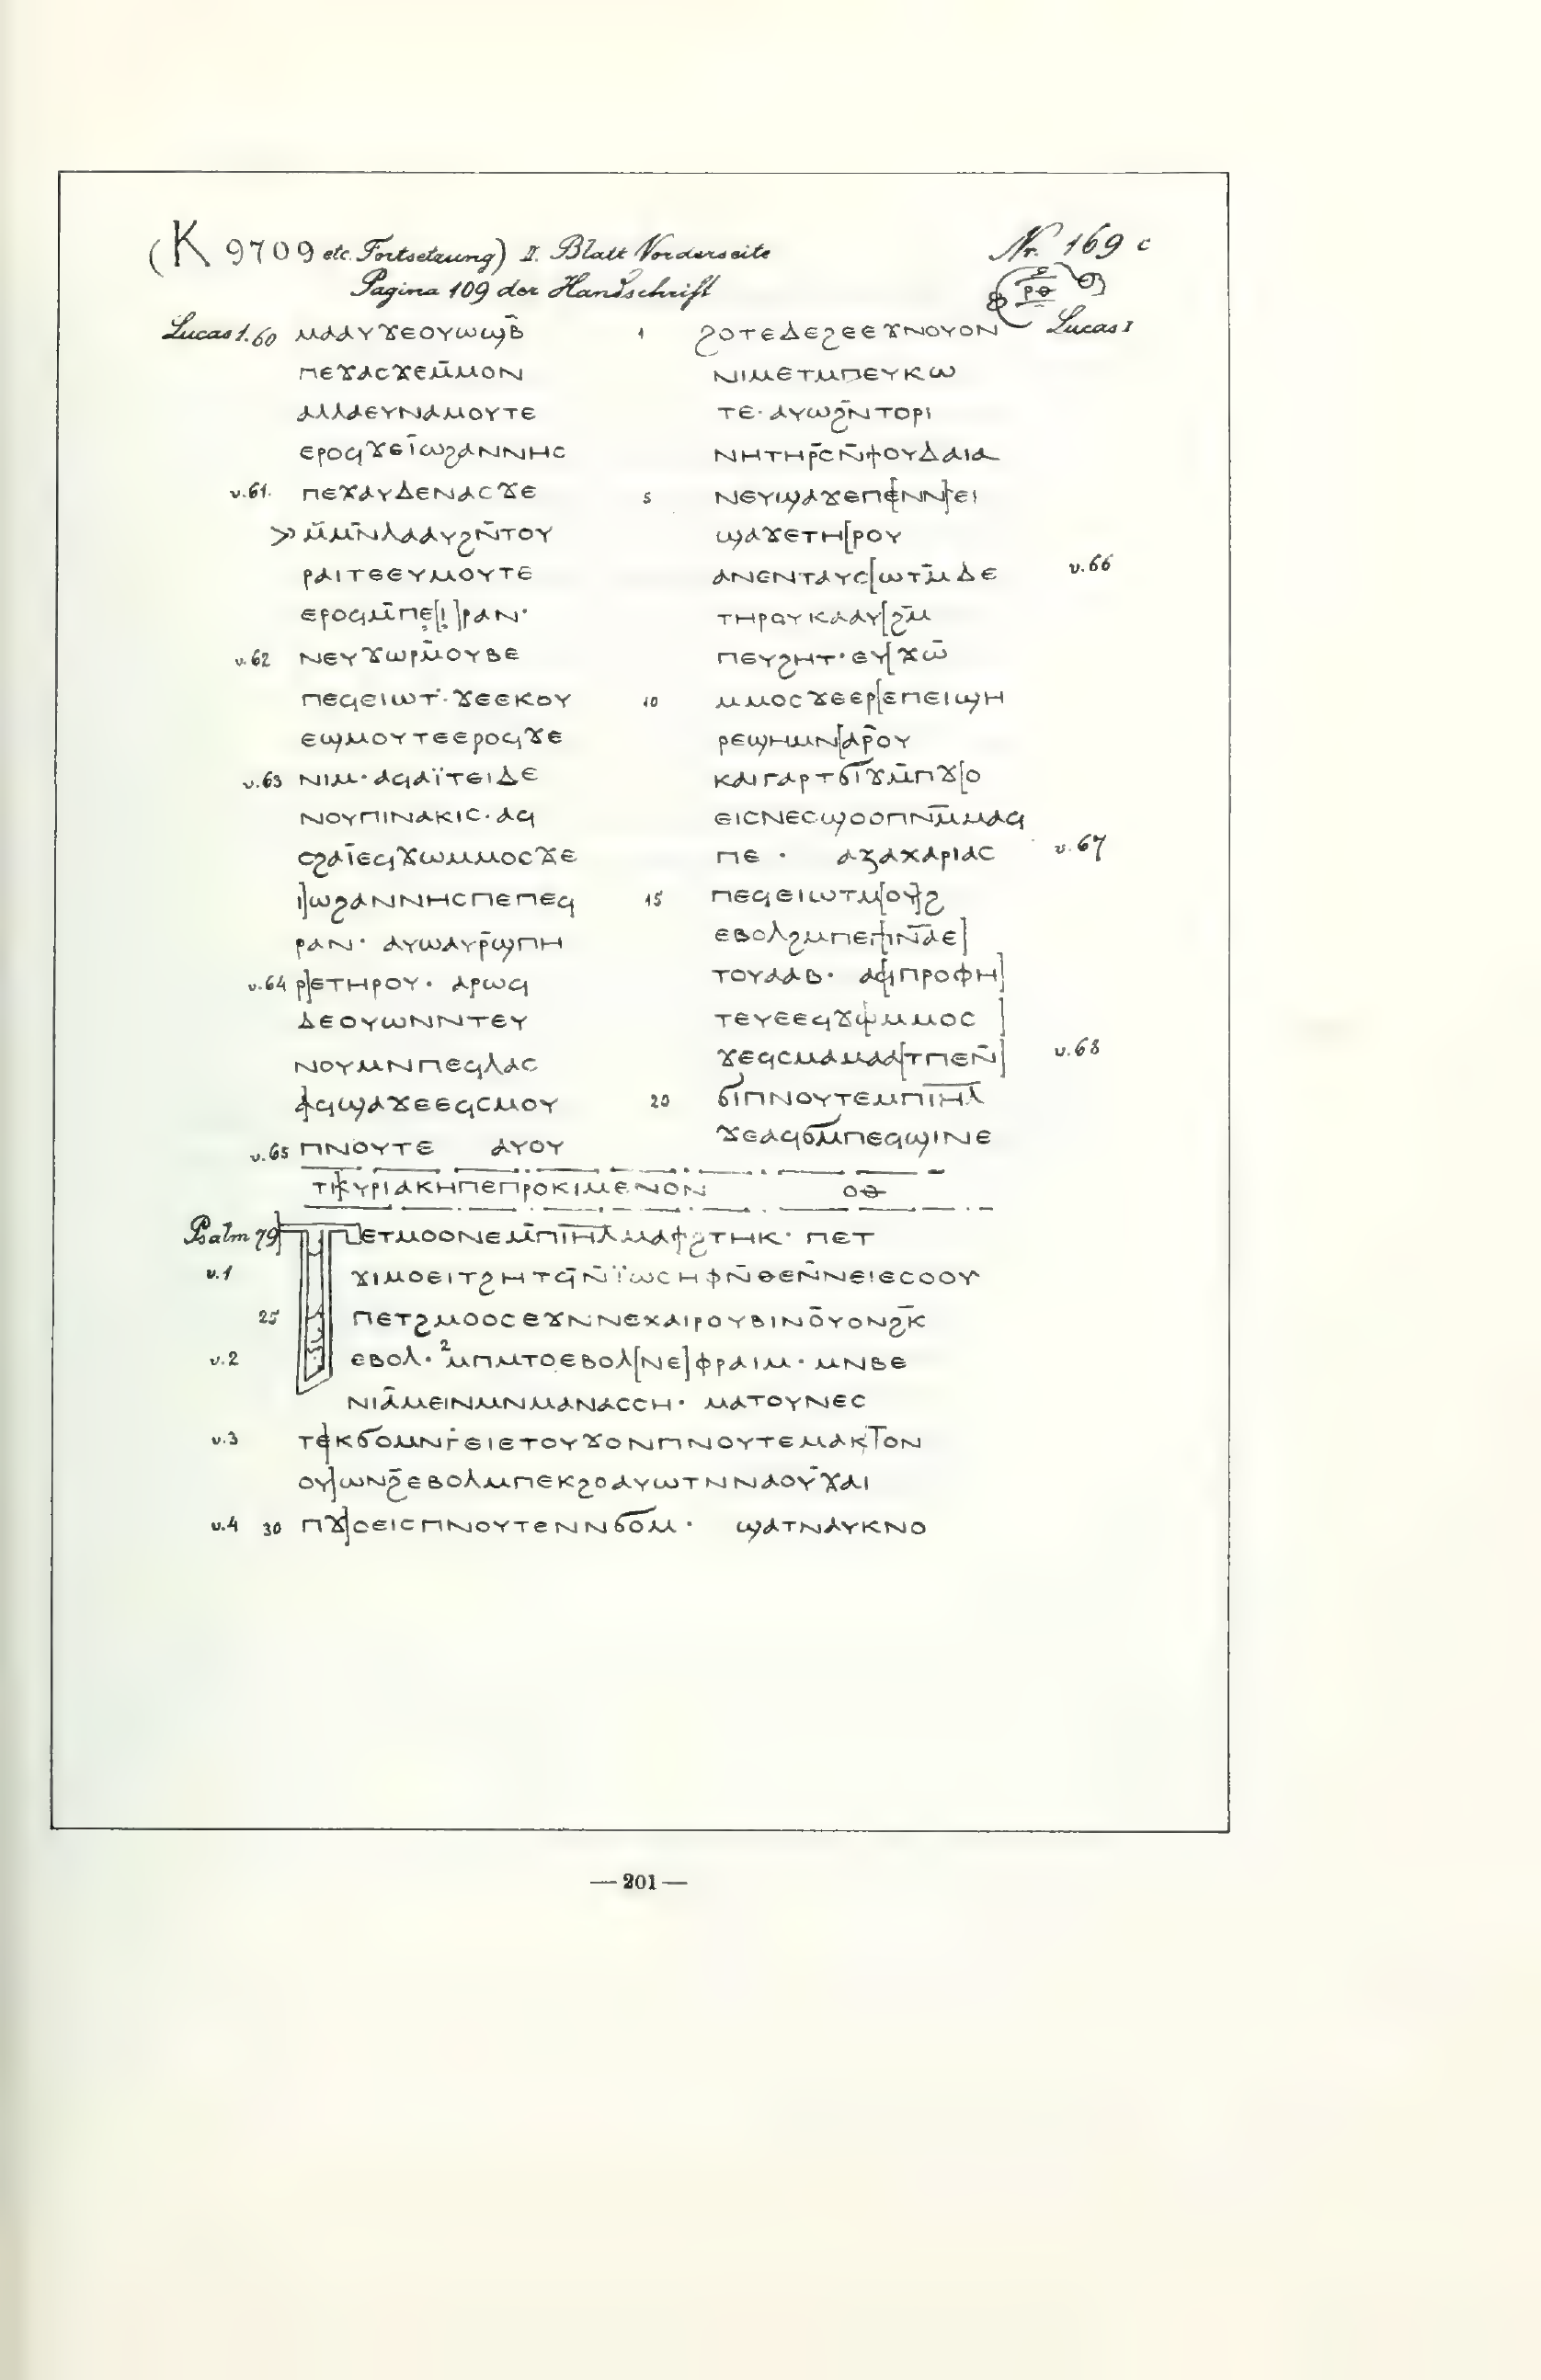 (K 9709 etc. Fortsetzung) II. Blatt Vorderseite Nr. 169 c
Pagina 109 der Handschrift
ⲣⲑ
Lucas 1.60 ⲙⲁⲁⲩϫⲉⲟⲩⲱϣⲃ̄
ⲡⲉϫⲁⲥϫⲉⲙ̄ⲙⲟⲛ
ⲁⲗⲗⲁⲉⲩⲛⲁⲙⲟⲩⲧⲉ
ⲉⲣⲟϥϫⲉⲓ̄ⲱϩⲁⲛⲛⲏⲥ
v.61. ⲡⲉϫⲁⲩⲇⲉⲛⲁⲥϫⲉ
>> ⲙ̄ⲙⲛ̄ⲗⲁⲁⲩϩⲛ̄ⲧⲟⲩ
ⲣⲁⲓⲧⲉⲉⲩⲙⲟⲩⲧⲉ
ⲉⲣⲟϥⲙ̄ⲡⲉ[!]ⲣⲁⲛ·
v.62 ⲛⲉⲩϫⲱⲣⲙ̄ⲟⲩⲃⲉ
ⲡⲉϥⲉⲓⲱⲧ·ϫⲉⲉⲕⲟⲩ
ⲉϣⲙⲟⲩⲧⲉⲉⲣⲟϥϫⲉ
v.63 ⲛⲓⲙ·ⲁϥⲁⲓ̈ⲧⲉⲓⲇⲉ
ⲛⲟⲩⲡⲓⲛⲁⲕⲓⲥ·ⲁϥ
ⲥϩⲁⲓ̄ⲉϥϫⲱⲙⲙⲟⲥϫⲉ
ⲓ]ⲱϩⲁⲛⲛⲏⲥⲡⲉⲡⲉϥ
ⲣⲁⲛ· ⲁⲩⲱⲁⲩⲣ̄ϣⲡⲏ
v.64 ⲣ]ⲉⲧⲏⲣⲟⲩ· ⲁⲣⲱϥ
ⲇⲉⲟⲩⲱⲛⲛⲧⲉⲩ
ⲛⲟⲩⲙⲛⲡⲉϥⲗⲁⲥ
ⲁ]ϥϣⲁϫⲉⲉϥⲥⲙⲟⲩ
v.65 ⲡⲛⲟⲩⲧⲉ ⲁⲩⲟⲩ
1 ϩⲟⲧⲉⲇⲉϩⲉⲉϫⲛⲟⲩⲟⲛ Lucas I
ⲛⲓⲙⲉⲧⲙⲡⲉⲩⲕⲱ
ⲧⲉ·ⲁⲩⲱϩⲛ̄ⲧⲟⲣⲓ
ⲛⲏⲧⲏⲣ̄ⲥⲛ̄ϯⲟⲩⲇⲁⲓⲁ
5 ⲛⲉⲩϣⲁϫⲉⲡⲉ[ⲛⲛ]ⲉⲓ
ϣⲁϫⲉⲧⲏ[ⲣⲟⲩ
ⲁⲛⲉⲛⲧⲁⲩⲥ[ⲱⲧⲙ̄ⲇⲉ v.66
ⲧⲏⲣⲟⲩⲕⲁⲁⲩ[ϩⲙ̄
ⲡⲉⲩϩⲏⲧ·ⲉⲩ[ϫⲱ̄
10 ⲙⲙⲟⲥϫⲉⲉⲣ[ⲉⲡⲉⲓϣⲏ
ⲣⲉϣⲏⲙⲛ[ⲁⲣ̄ⲟⲩ
ⲕⲁⲓⲅⲁⲣⲧϭⲓϫⲙ̄ⲡϫ[ⲟ
ⲉⲓⲥⲛⲉⲥϣⲟⲟⲡⲛⲙ̄ⲙⲁϥ
ⲡⲉ · ⲁⲍⲁⲭⲁⲣⲓⲁⲥ v.67
15 ⲡⲉϥⲉⲓⲱⲧⲙ[ⲟⲩ]ϩ
ⲉⲃⲟⲗϩⲙⲡⲉ[ⲡⲛ̄ⲁ̄ⲉ]
ⲧⲟⲩⲁⲁⲃ· ⲁϥ[ⲡⲣⲟⲫⲏ]
ⲧⲉⲩⲉⲉϥϫ[ⲱⲙⲙⲟⲥ ]
ϫⲉϥⲥⲙⲁⲙⲁⲁ[ⲧⲡⲉⲛ̄] v.68
20 ϭⲓⲡⲛⲟⲩⲧⲉⲙⲡⲓ̄ⲏ̄ⲗ̄
ϫⲉⲁϥϭⲙ̄ⲡⲉϥϣⲓⲛⲉ
ⲧⲕ]ⲩⲣⲓⲁⲕⲏⲡⲉⲡⲣⲟⲕⲓⲙⲉⲛⲟⲛ ⲟⲑ
Psalm 79 ⲡⲉⲧⲙⲟⲟⲛⲉⲙ̄ⲡⲓ̄ⲏ̄ⲗ̄ⲙⲁϯϩⲧⲏⲕ· ⲡⲉⲧ
v.1 ϫⲓⲙⲟⲉⲓⲧϩⲏⲧϥ̄ⲛ̄ⲓ̈ⲱⲥⲏⲫⲛ̄ⲑⲉⲛ̄ⲛⲉⲓⲉⲥⲟⲟⲩ
25 ⲡⲉⲧϩⲙⲟⲟⲥⲉϫⲛⲛⲉⲭⲁⲓⲣⲟⲩⲃⲓⲛⲟ̄ⲩⲟⲛϩ̄ⲕ
v.2 ⲉⲃⲟⲗ·²ⲙⲡⲙⲧⲟⲉⲃⲟⲗ[ⲛⲉ]ⲫⲣⲁⲓⲙ·ⲙⲛⲃⲉ
ⲛⲓⲁ̄ⲙⲉⲓⲛⲙⲛⲙⲁⲛⲁⲥⲥⲏ· ⲙⲁⲧⲟⲩⲛⲉⲥ
v.3 ⲧⲉ]ⲕϭⲟⲙⲛⲅ̇ⲉⲓⲉⲧⲟⲩϫⲟⲛⲡⲛⲟⲩⲧⲉⲙⲁⲕⲧⲟⲛ
ⲟⲩ]ⲱⲛϩ̄ⲉⲃⲟⲗⲙⲡⲉⲕϩⲟⲁⲩⲱⲧⲛⲛⲁⲟⲩϫⲁⲓ
v.4 30 ⲡϫ]ⲟⲉⲓⲥⲡⲛⲟⲩⲧⲉⲛⲛϭⲟⲙ· ϣⲁⲧⲛⲁⲩⲕⲛⲟ
— 201 —